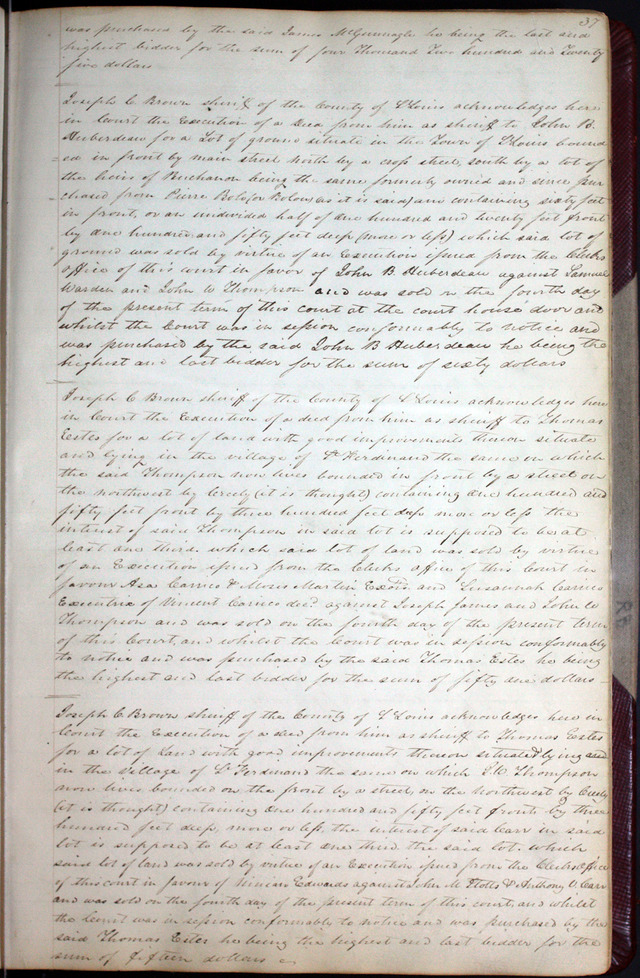 37
was purchased by the said James McGunnagle he being the last and
highest bidder for the sum of four Thousand Two hundred and Twenty
five dollars
Joseph C Brown sheriff of the County of St Louis acknowledges here
in Court the Execution of a Deed from him as sheriff to John B.
Huberdeau for a Lot of ground situate in the Town of St Louis bound
ed in front by main street north by a cross street, south by a lot of
the heirs of Buchanan being the same formerly owned and since pur
chased from Pierre (as it is said) and containing sixty feet
in front, or an undivided half of one hundred and twenty feet front
by one hundred and fifty feet deep (more or less) which said lot of
ground was sold by virtue of an Execution issued from the Clerks
office of this court in favor of John B Huberdeau against Samuel
Warden and John W Thompson and was sold on the fourth day
of the present term of this court at the court house door and
whilst the Court was in session conformably to notice and
was purchased by the said John B Huberdeau he being the
highest and last bidder for the sum of sixty dollars
Joseph C Brown sheriff of the County of St Louis acknowledges here
in Court the Execution of a deed from him as sheriff to Thomas
Estes for a lot of land with good improvements thereon situate
and lying in the village of St Ferdinand the same on which
the said Thompson now lives bounded in front by a street on
the northwest by (it is thought) containing one hundred and
fifty feet front by three hundred feet deep more or less the
interest of said Thompson in said lot is supposed to be at
least one third. which said lot of land was sold by virtue
of an Execution issued from the Clerks office of this Court in
favour Asa Carrico & Moses Martin Exors and Susannah Carrico
Executrix of Vincent Carrico decd against Joseph James and John W
Thompson and was sold on the fourth day of the present term
of this Court, and whilst the Court was in session conformably
to notice and was purchased by the said Thomas Estes he being
the highest and last bidder for the sum of fifty one dollars
Joseph C Brown sheriff of the County of St Louis acknowledges here in
Court the Execution of a deed from him as sheriff to Thomas Estes
for a lot of Land with good improvements thereon situated lying and
in the village of St Ferdinand the same on which J. W. Thompson
now lives bounded on the front by a street, on the northwest by
(it is thought) containing one hundred and fifty feet front by three
hundred feet deep, more or less, the interest of said Carr in said
lot is supposed to be at least one third the said lot. which
said lot of land was sold by virtue of an Execution issued from the Clerks office
of this court in favour of Ninian Edwards against John M Stotts & Anthony V. Carr
and was sold on the fourth day of the present term of this court, and whilst
the Court was in session conformably to notice and was purchased by the
said Thomas Estes he being the highest and last bidder for the
sum of fifteen dollars